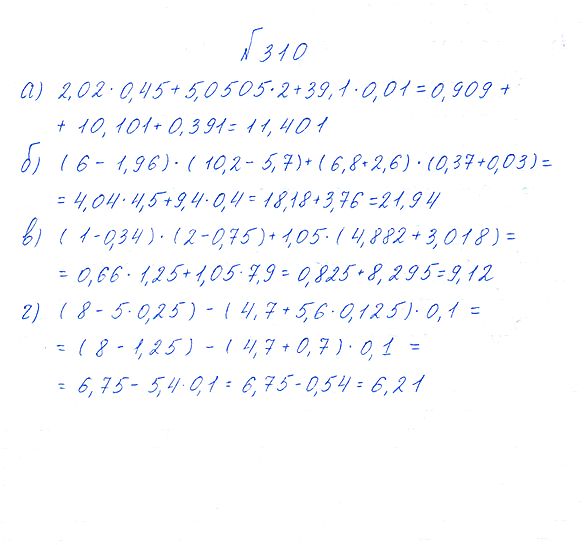 №310
а) 2,02·0,45+5,0505·2+39,1·0,01=0,909+
+10,101+0,391=11,401
б) (6-1,96)·(10,2-5,7)+(6,8+2,6)·(0,37+0,03)=
=4,04·4,5+9,4·0,4=18,18+3,76=21,94
в) (1-0,34)·(2-0,75)+1,05·(4,882+3,018)=
=0,66·1,25+1,05·7,9=0,825+8,295=9,12
г) (8-5·0,25)-(4,7+5,6·0,125)·0,1=
=(8-1,25)-(4,7+0,7)·0,1=
=6,75-5,4·0,1=6,75-0,54=6,21